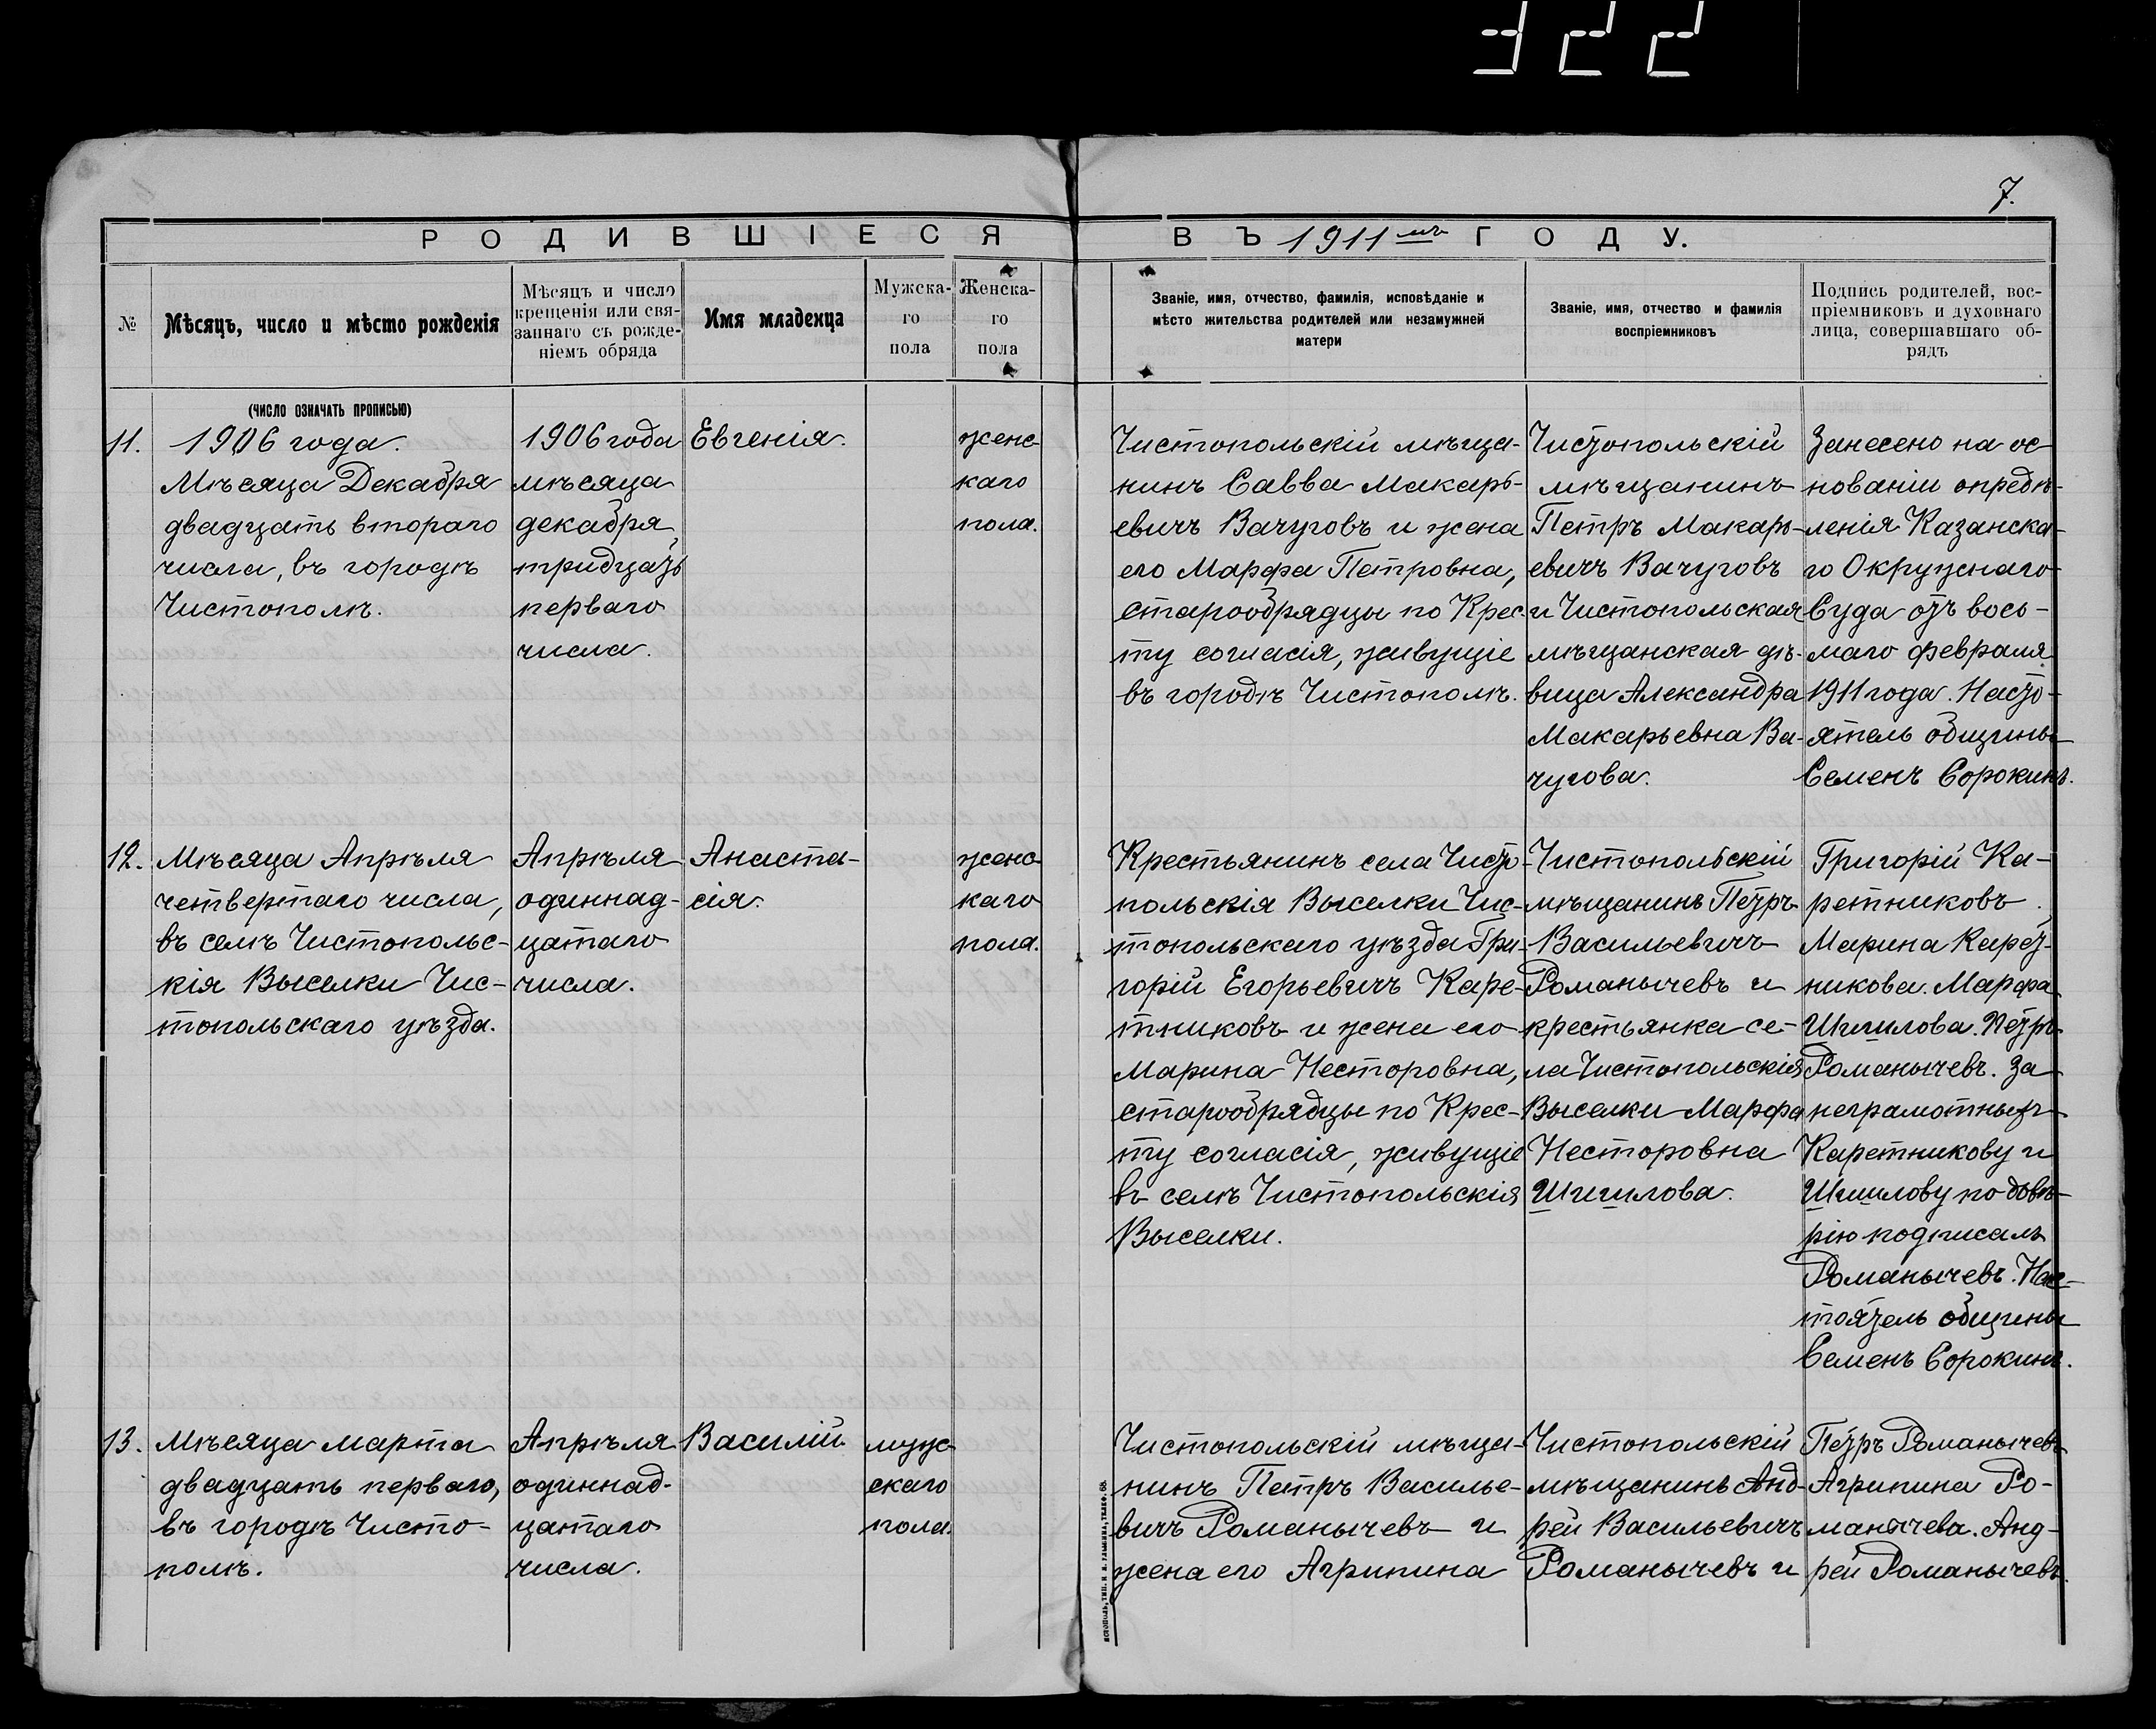 322
7.
РОДИВШІЕСЯ ВЪ 1911мъ ГОДУ.
№
Мѣсяцъ, число и мѣсто рожденія
Мѣсяцъ и число
крещенія или свя-
заннаго съ рожде-
ніемъ обряда
Имя младенца
Мужска-
го
пола
Женска-
го
пола
Званіе, имя, отчество, фамилія, исповѣданіе и
мѣсто жительства родителей или незамужней
матери
Званіе, имя, отчество и фамилія
воспріемниковъ
Подпись родителей, вос-
пріемниковъ и духовнаго
лица, совершавшаго об-
рядъ
(ЧИСЛО ОЗНАЧАТЬ ПРОПИСЬЮ)
11.
1906 года.
Мѣсяца Декабря
двадцать втораго
числа, въ городѣ
Чистополѣ.
1906 года
мѣсяца
декабря,
тридцать
перваго
числа.
Евгенія.
женс-
каго
пола.
Чистопольскій мѣща-
нинъ Савва Макарь-
евичъ Вачуговъ и жена
его Марфа Петровна,
старообрядцы по Крес-
ту согласія, живущіе
въ городѣ Чистополѣ.
Чистопольскій
мѣщанинъ
Петръ Макарь-
евичъ Вачуговъ
и Чистопольская
мѣщанская дѣ-
вица Александра
Макарьевна Ва-
чугова.
Занесено на ос-
нованіи опредѣ-
ленія Казанска-
го Окружнаго
Суда отъ вось-
маго февраля
1911 года. Насто-
ятель общины
Семенъ Сорокинъ.
12.
Мѣсяца Апрѣля
четвертаго числа,
въ селѣ Чистопольс-
кія Выселки Чис-
топольскаго уѣзда.
Апрѣля
одиннад-
цатаго
числа.
Анаста-
сія.
женс-
каго
пола.
Крестьянинъ села Чисто-
польскія Выселки Чис-
топольскаго уѣзда Гри-
горій Егорьевичъ Каре-
тниковъ и жена его
Марина Несторовна,
старообрядцы по Крес-
ту согласія, живущіе
въ селѣ Чистопольскія
Выселки.
Чистопольскій
мѣщанинъ Петръ
Васильевичъ
Романычевъ и
крестьянка се-
ла Чистопольскія
Выселки Марфа
Несторовна
Шишилова.
Григорій Ка-
ретниковъ.
Марина Карет-
никова. Марфа
Шишилова. Петръ
Романычевъ. За
неграмотныхъ
Каретникову и
Шишилову по довѣ-
рію подписалъ
Романычевъ. Нас-
тоятель общины
Семенъ Сорокинъ.
13.
Мѣсяца марта
двадцать перваго,
въ городѣ Чисто-
полѣ.
Апрѣля
одиннад-
цатаго
числа.
Василій
мужс-
скаго
пола.
Чистопольскій мѣща-
нинъ Петръ Василье-
вичъ Романычевъ и
жена его Агрипина
Чистопольскій
мѣщанинъ Анд-
рей Васильевичъ
Романычевъ и
Петръ Романычевъ
Агрипина Ро-
манычева. Анд-
рей Романычевъ.